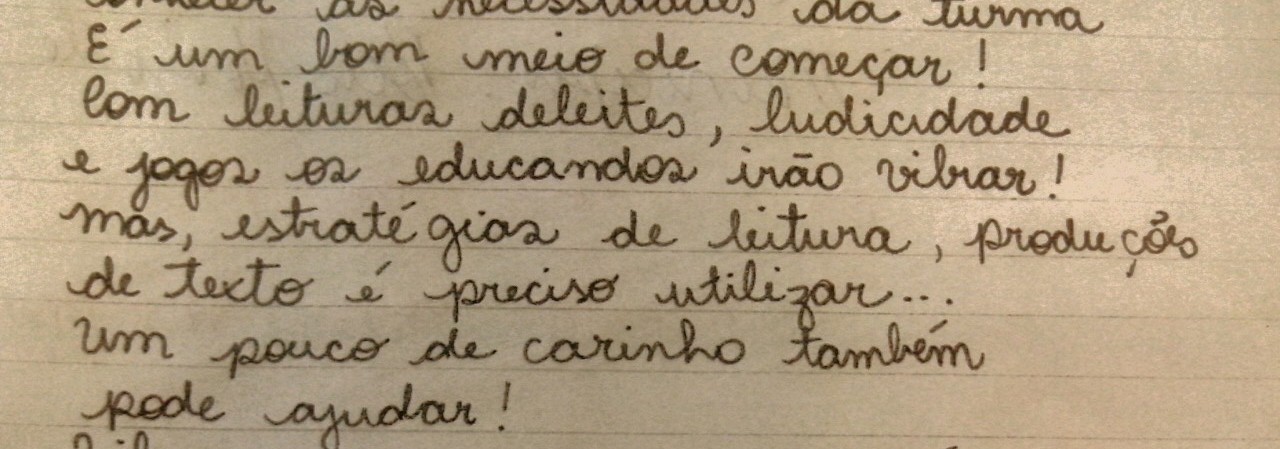 conhecer as necessidades da turma
É um bom meio de começar!
Com leituras deleites, ludicidade
e jogos os educandos irão vibrar!
mas, estratégias de leitura, produções
de texto é preciso utilizar...
um pouco de carinho também
pode ajudar!